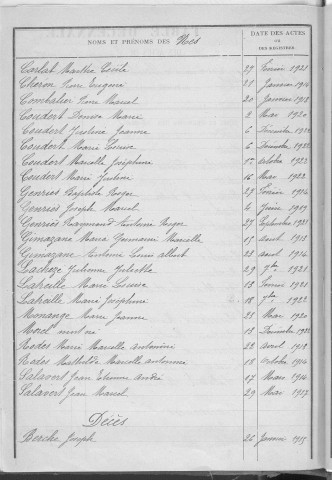 NOMS ET PRÉNOMS DES Nés
DATE DES ACTES
OU
DES REGISTRES
Marthe 27 Février 1921
Cheron Eugène 21 Janvier 1914
Combalier Marcel 20 Janvier 1918
Coudert Denise Marie 2 Mai 1920
Coudert Justine Jeanne 6 Décembre
Coudert Marie Louise 6 Décembre
Coudert Marcelle Joséphine 1er Octobre 1922
Coudert Marie Justine 16 Mars 1922
Genries Baptiste 29 Février 1914
Genries Joseph Marcel 4 1919
Genries Raymond Antoine 27 Septembre 1921
Gimazane Maria Germaine Marcelle 15 Avril 1913
Gimazane Antoine Louis Albert 28 Avril 1914
Lacheze Julienne Juliette 29 7bre 1921
Laheille Marie Louise 13 1921
Laheille Marie Joséphine 18 7bre 1922
Monange Marie Jeanne 21 Mars 1920
Morel mort né 15 Décembre
Rodes Marie Marcelle Antonine 22 Avril 1913
Rodes Mathilde Marcelle Antonine 18 Octobre 1914
Salavert Jean Etienne André 17 Mars 1914
Salavert Jean Marcel 29 Mars 1917
Décès
Joseph 26 Janvier 1915